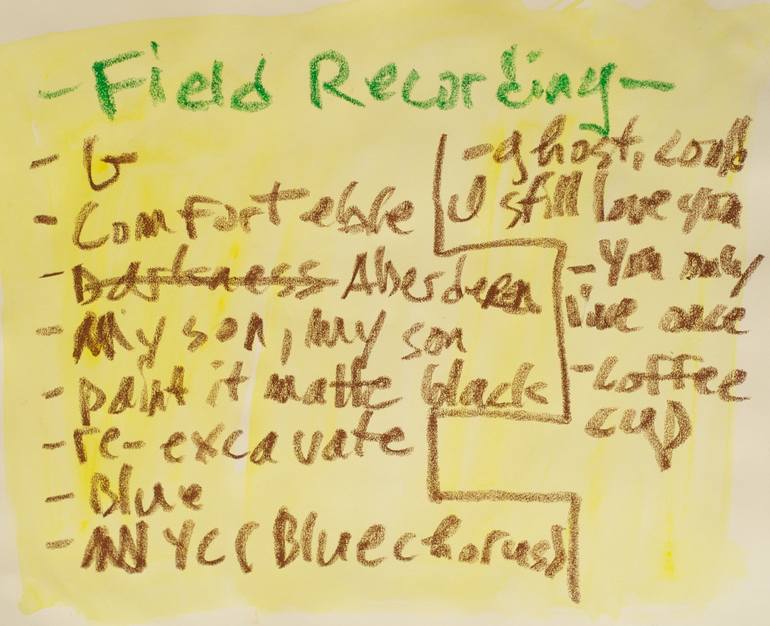 - Field Recording -
- G
- Comfortable
- Darkness Aberdeen
- My son, my son
- paint it matte black
- re-excavate
- Blue
- NYC (Blue chorus)
- ghost, could
U still love you
- You only
live once
- coffee
cup